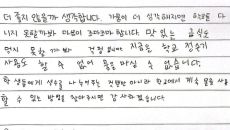 더 좋지 않을까 생각합니다. 가뭄이 더 심각해지면 학교를 다
니지 못할까봐 마음이 조마조마 합니다. 맛있는 급식도
먹지 못할까봐 걱정됩니다 지금은 학교 정수기
사용도 할 수 없어 물을 마실 수 없습니다.
학생들에게 생수를 나누어주는 건 했던 아니라 학교에서 계속 물을 사용
할 수 있는 방법을 찾아주시면 감사하겠습니다.